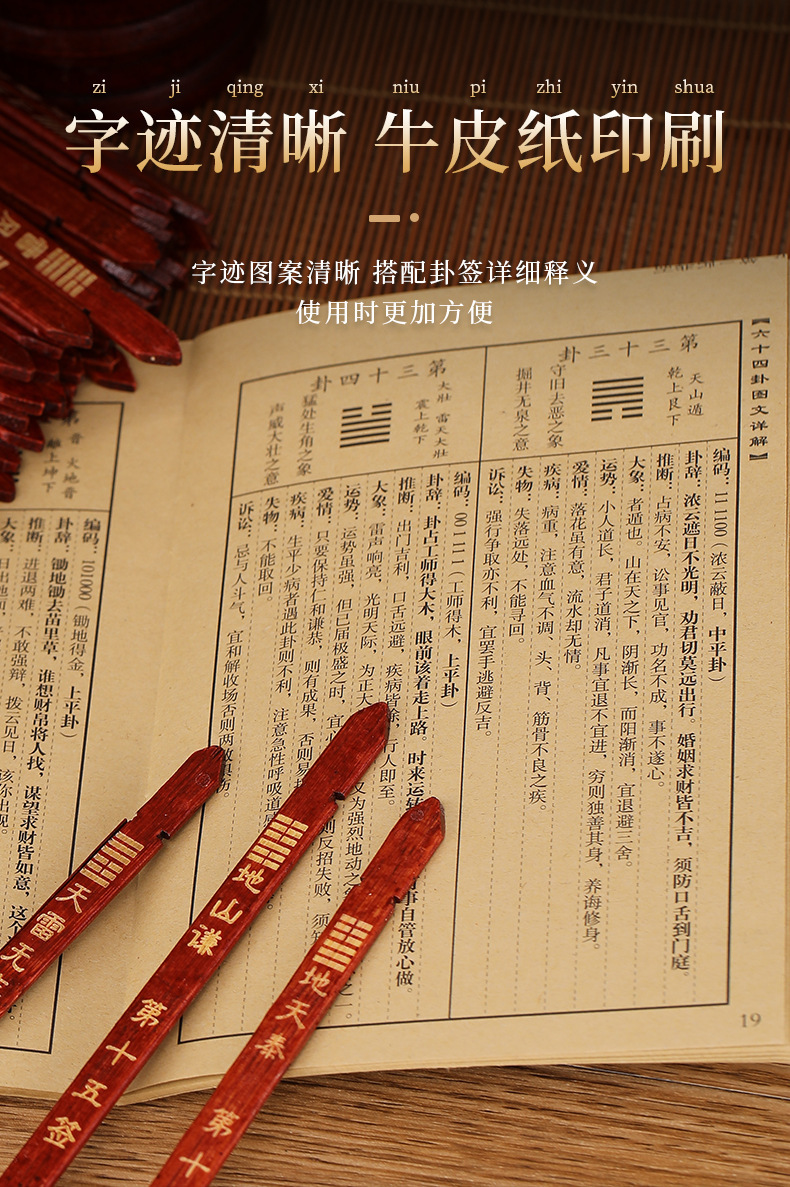 zi ji qing xi niu pi zhi yin shua
字迹清晰 牛皮纸印刷
字迹图案清晰 搭配卦签详细释义
使用时更加方便
【六十四卦图文详解】
第三十三卦
天山遁
乾上艮下
守旧去恶之象
掘井无泉之意
编码：111100（浓云蔽日，中平卦）
卦辞：浓云遮日不光明，劝君切莫远出行。婚姻求财皆不吉，须防口舌到门庭。
推断：占病不安，讼事见官，功名不成，事不遂心。
大象：者遁也。山在天之下，阴渐长，而阳渐消，宜退避三舍。
运势：小人道长，君子道消，凡事宜退不宜进，穷则独善其身，养海修身。
爱情：落花虽有意，流水却无情。
疾病：病重，注意血气不调、头、背，筋骨不良之疾。
失物：失落远处，不能寻回。
诉讼：强行争取亦不利，宜罢手逃避反吉。
第三十四卦
大壮 雷天大壮
震上乾下
猛处生角之象
声威大壮之意
编码：001111（工师得木，上平卦）
卦辞：卦占工师得大木，眼前该着走上路。时来运转
事自管放心做。
推断：出门吉利，口舌远避，疾病皆除，行人即至。
大象：雷声响亮，光明天际，为正大
又为强烈地动之
运势：运势虽强，但已届极盛之时，宜心
则反招失败，须
爱情：只要保持仁和谦恭，则有成果，否则易
疾病：生平少病者遇此卦则不利，注意急性呼吸道
失物：不能取回。
诉讼：忌与人斗气，宜和解收场否则两败俱伤。
19
第
晋 火地晋
离上坤下
编码：101000（锄地得金，上平卦）
卦辞：锄地锄去苗里草，谁想财帛将人找，谋望求财皆如意，这个
推断：进退两难，不敢强辩，拨云见日，该你出现。
大象：日出地面
天雷无
地山谦
第十五签
地天泰
第十